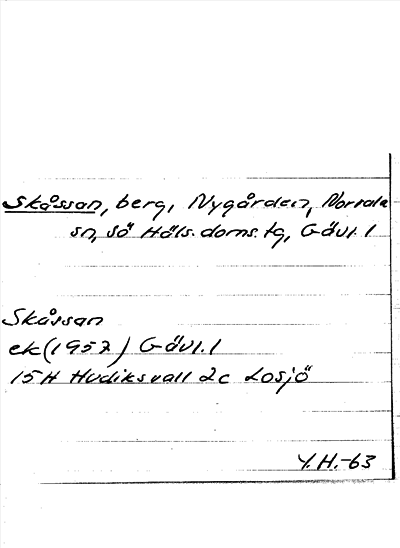 Skåssan, berg, Nygården, Norrala
sn, sö Häls. doms. tg, Gävl. l
Skåssan
ek (1957) Gävl. l
15H Hudiksvall 2c Losjö
Y.H.-63